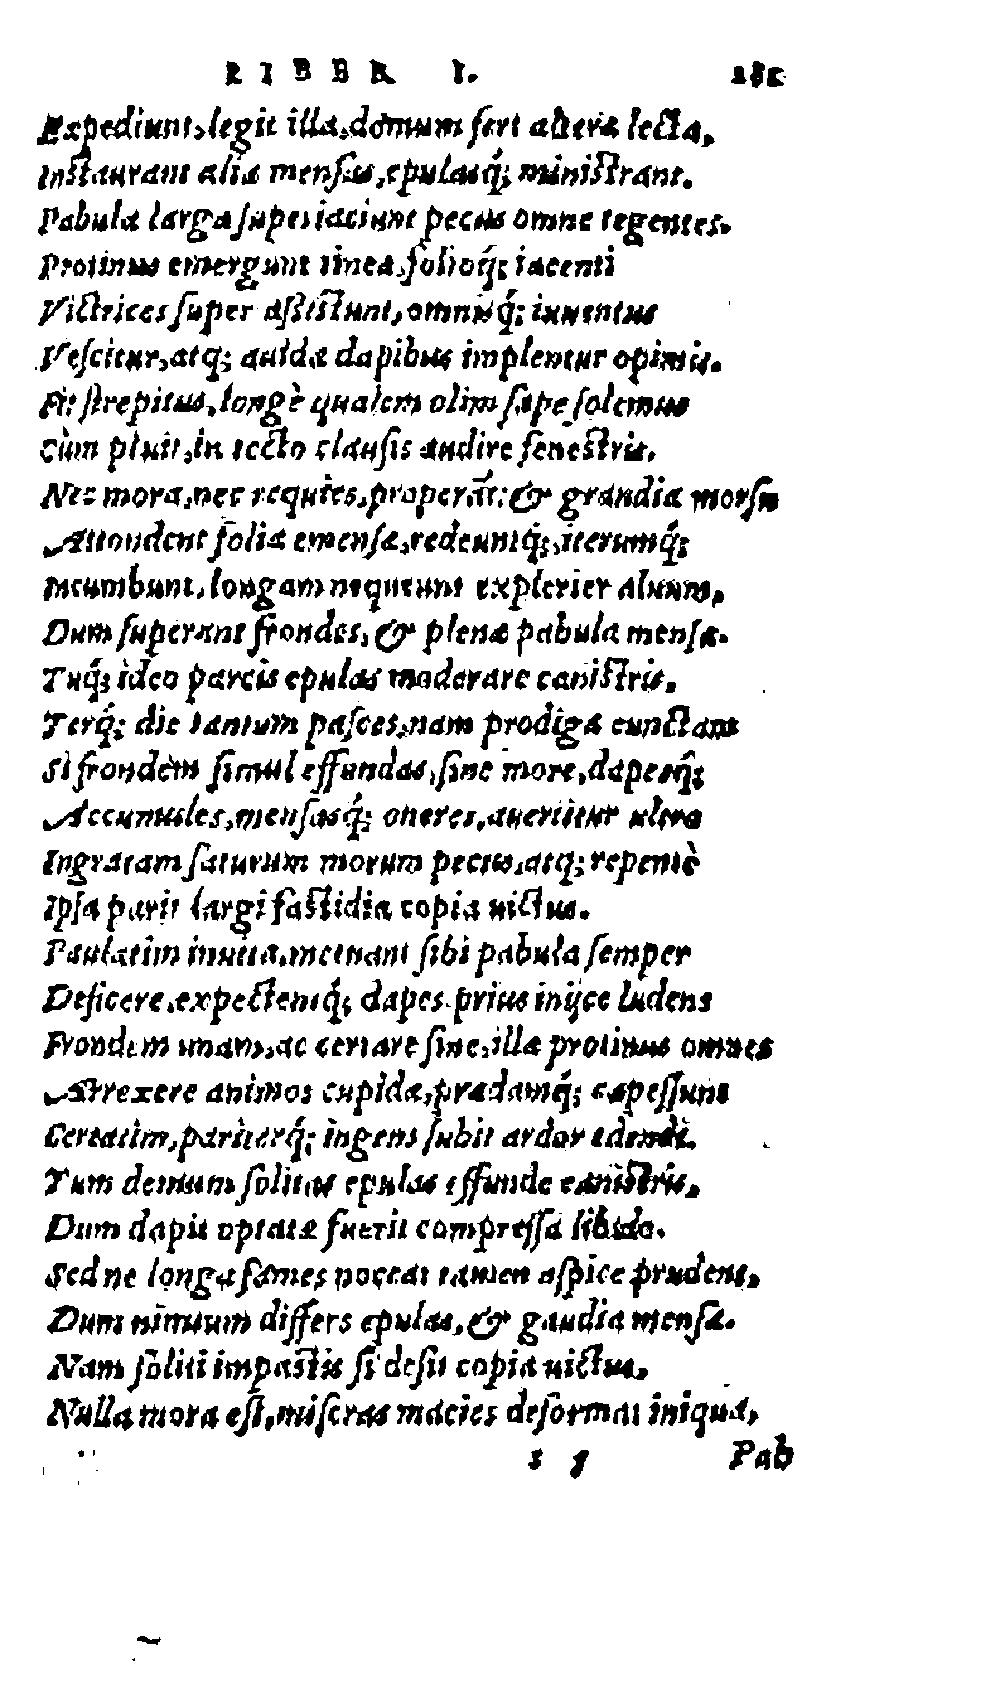 LIBER I.
Expediunt, legit illa, domum fert altera lecta,
Instaurant alia mensas, epulasq́; ministrant.
Pabula larga superiaciunt pecus omne tegentes.
Protinus emergunt tinea, folioq́; iacenti
Victrices super assistunt, omnisq́; iuuentus
Vescitur, atq; auidæ dapibus implentur opimis.
Fit strepitus, longè qualem olim sæpe solemus
Cùm pluit, in tecto clausis audire fenestris.
Nec mora, nec requies, properāt: & grandia morsu
Attondent folia emensa, redeuntq́;, iterumq́;
Incumbunt, longam nequeunt explerier aluum,
Dum superant frondes, & plenæ pabula mensæ.
Tuq́; ideo parcis epulas moderare canistris.
Terq́; die tantum pasces, nam prodiga cunctam
Si frondem simul effundas, sine more, dapesq́;
Accumules, mensasq́; oneres, auertitur ultro
Ingratam saturum morum pecus, atq; repentè
Ipsa parit largi fastidia copia uictus.
Paulatim inuita, metuant sibi pabula semper
Deficere, expectentq́; dapes. prius inijce ludens
Frondem unam, ac certare sine, illæ protinus omnes
Astrexere animos cupidæ, prædamq́; capessunt
Certatim, pariterq́; ingens subit ardor edendi.
Tum demum solitas epulas effunde canistris,
Dum dapis optatæ fuerit compressa libido.
Sed ne longa fames noceat tamen aspice prudens,
Dum nimium differs epulas, & gaudia mensæ.
Nam soliti impastis si desit copia uictus,
Nulla mora est, miseras macies deformat iniqua,
Pab